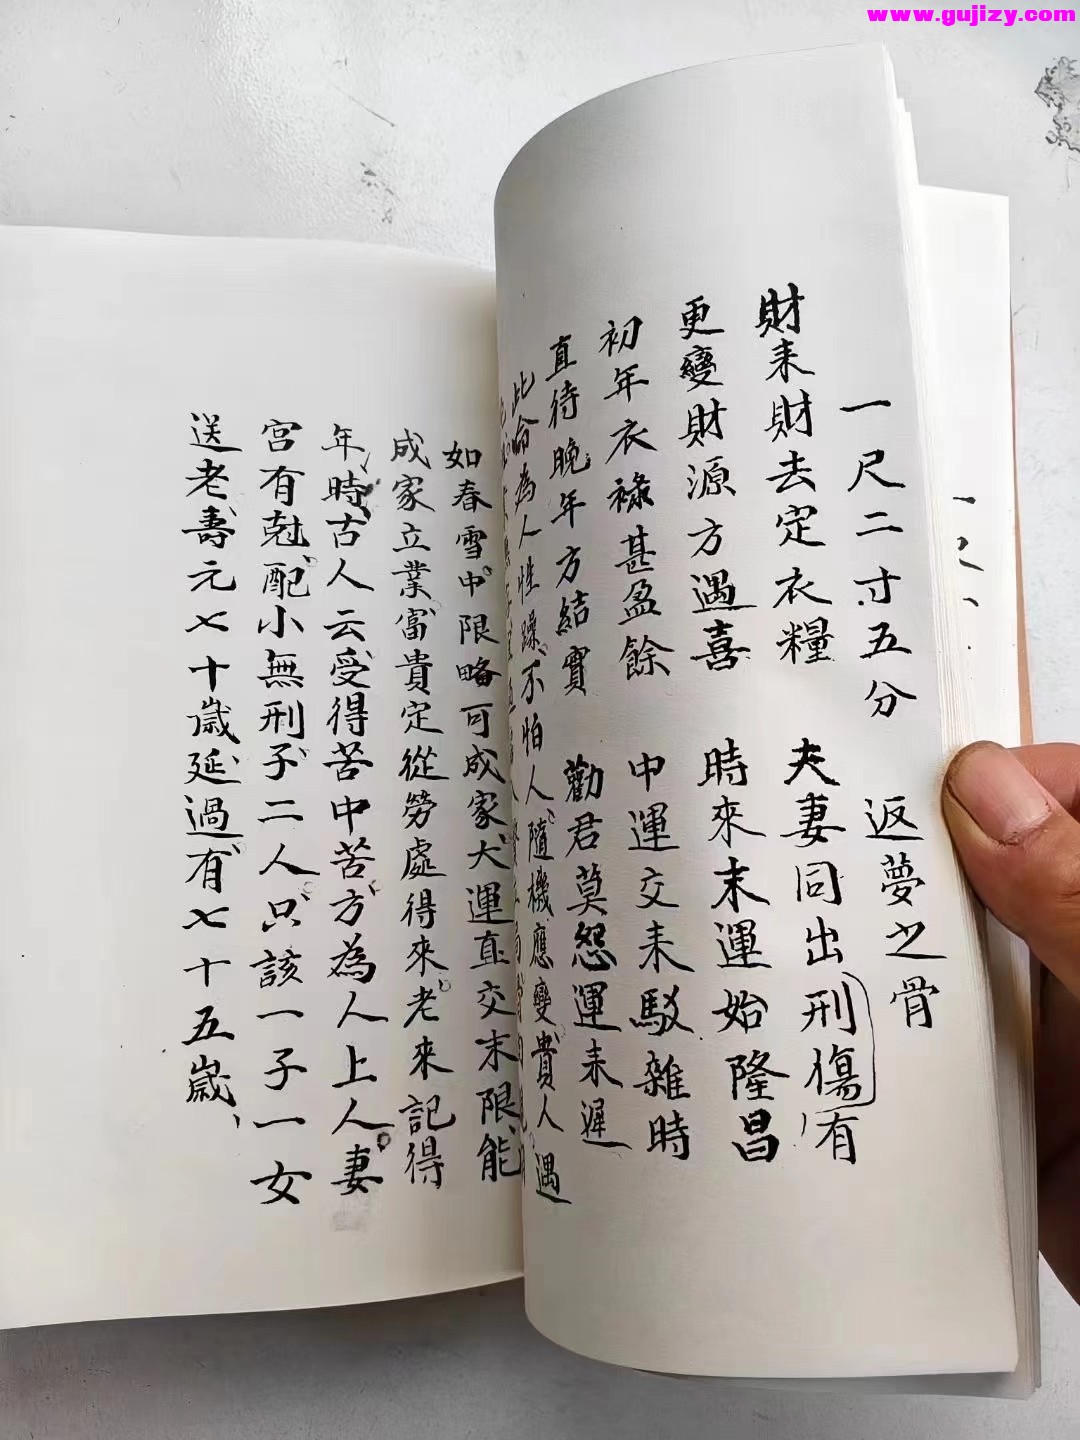 www.gujizy.com
一尺二寸五分 返夢之骨
財来財去定衣糧 夫妻同出刑傷有
更變財源方遇喜 時來末運始隆昌
初年衣祿甚盈餘 中運交来駁雜時
直待晚年方結實 勸君莫怨運来遲
此命為人性躁不怕人隨機應變貴人遇
如春雪中限略可成家大運直交末限能
成家立業富貴定從勞處得來老來記得
年時古人云受得苦中苦方為人上人妻
宮有尅配小無刑子二人只該一子一女
送老壽元七十歲延過有七十五歲